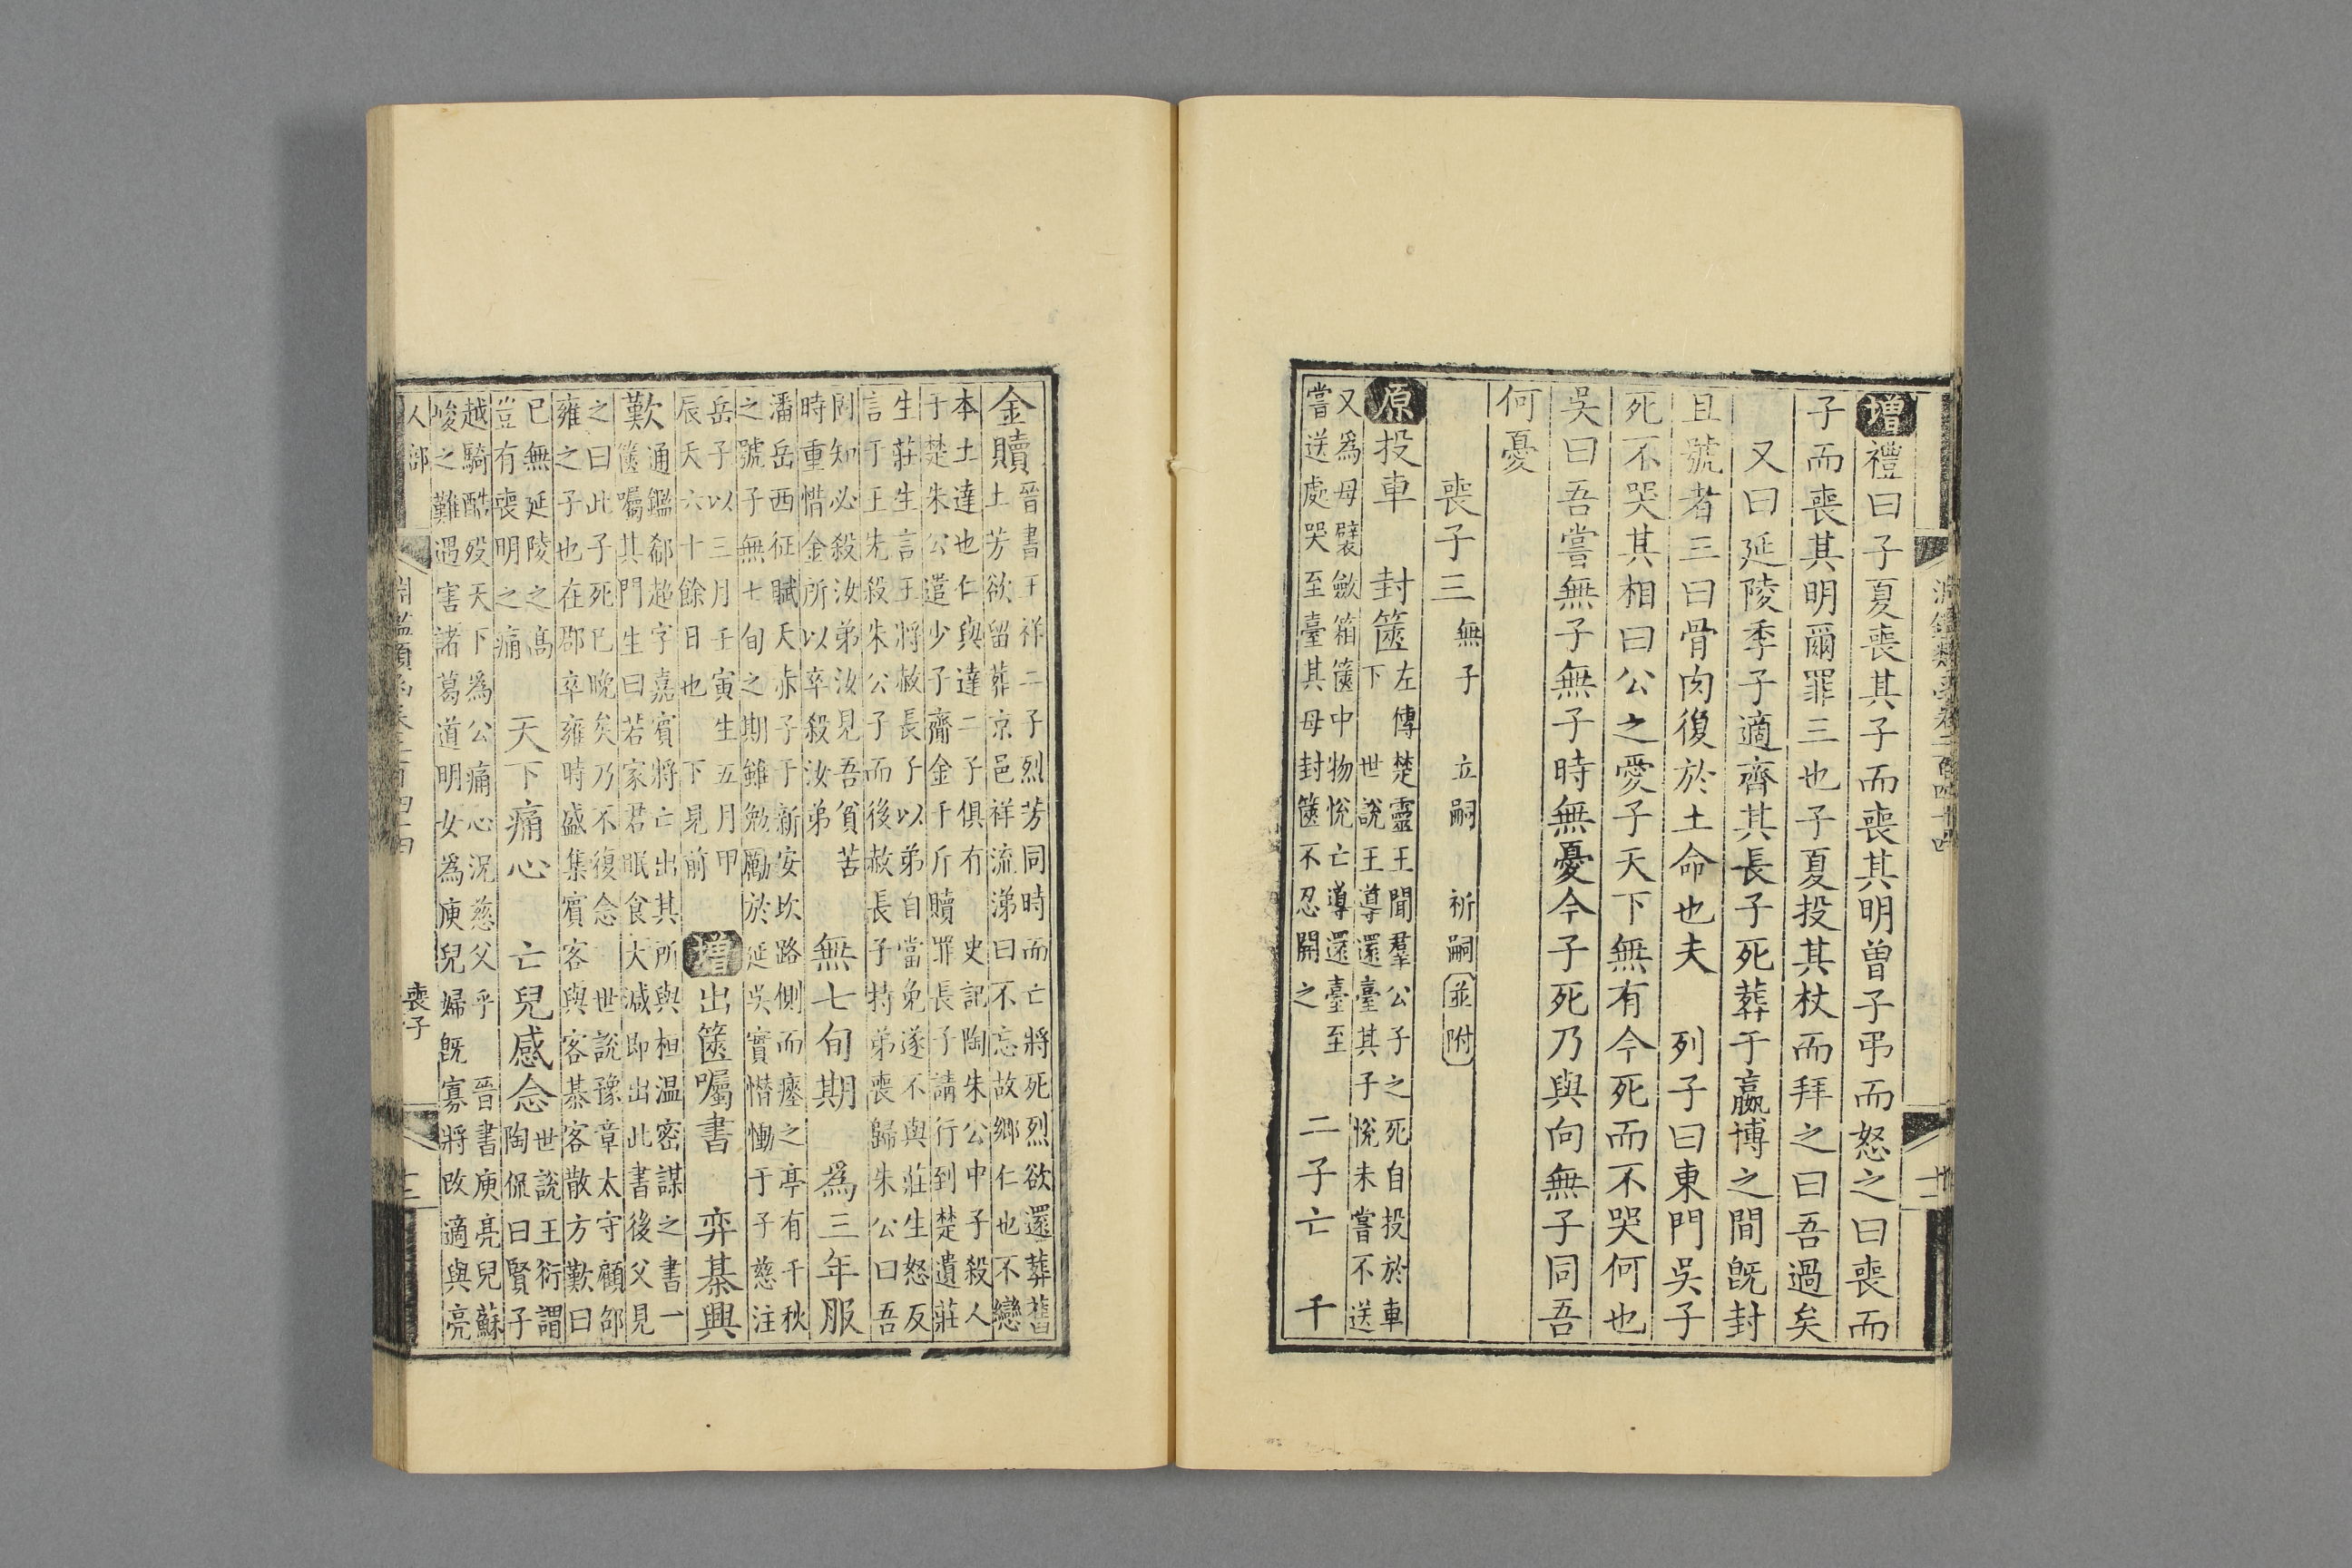 淵鑑類函卷二百四十四
增禮曰子夏喪其子而喪其明曾子弔而怒之曰喪而
子而喪其明爾罪三也子夏投其杖而拜之曰吾過矣
又曰延陵季子適齊其長子死葬于嬴博之間旣封
且號者三曰骨肉復於土命也夫　列子曰東門吳子
死不哭其相曰公之愛子天下無有今死而不哭何也
吳曰吾嘗無子無子時無憂今子死乃與向無子同吾
何憂
喪子三　無子　立嗣　祈嗣　並附
原投車　封篋
左傳楚靈王聞羣公子之死自投於車
下　世說王導還臺其子悅未嘗不送
又爲母襞斂箱篋中物悅亡導還臺至
嘗送處哭至臺其母封篋不忍開之
二子亡　千
金贖
晉書王祥二子烈芳同時而亡將死烈欲還葬舊
土芳欲留葬京邑祥流涕曰不忘故鄉仁也不戀
本土達也仁與達二子俱有　史記陶朱公中子殺人
于楚朱公遣少子齎金千斤贖罪長子請行到楚遺莊
生莊生言王將赦長子以弟自當免遂不與莊生怒反
言于王先殺朱公子而後赦長子持弟喪歸朱公曰吾
固知必殺汝弟汝見吾貧苦
時重惜金所以卒殺汝弟
無七旬期　爲三年服
潘岳西征賦夭赤子于新安坎路側而瘞之亭有千秋
之號子無七旬之期雖勉勵於延吳實憯慟于子慈注
岳子以三月壬寅生五月甲
辰夭六十餘日也　下見前
增出篋囑書　弈棊興
歎
通鑑郗超字嘉賓將亡出其所與桓温密謀之書一
篋囑其門生曰若家君眠食大減即出此書後父見
之曰此子死已晚矣乃不復念　世說豫章太守顧邵
雍之子也在郡卒雍時盛集賓客與客棊客散方歎曰
已無延陵之高
豈有喪明之痛
天下痛心　亡兒感念
世說王衍謂
陶侃曰賢子
越騎酷歿天下爲公痛心況慈父乎　晉書庾亮兒蘇
峻之難遇害諸葛道明女爲庾兒婦旣寡將改適與亮
人部　淵鑑類函卷二百四十四　喪子　十二